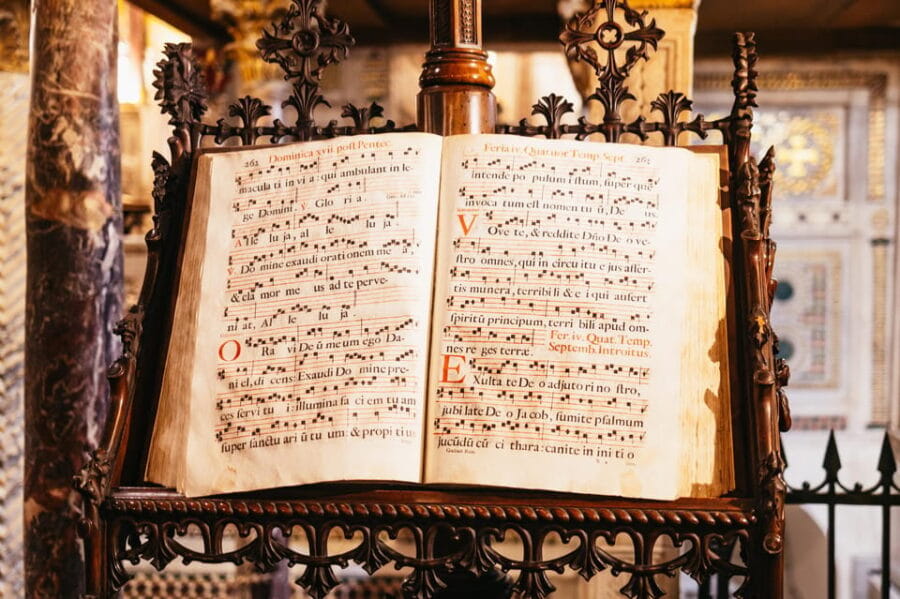 262 Dominica xvii. post Pentec
macula ti in vi a : qui ambulant in le-
ge Domini. Glo ri a.
Al le lu ja, al le lu ja.
Do mine exaudi orationem me a,
& cla mor me us ad te perve-
ni at, Al le lu ja.
O Ra vi De ū me um ego Da-
ni el, di cens: Exaudi Do mine pre-
ces servi tu i : illumina fa ci em tu am
super sanctu ari ū tu um : & propi ti us
Feria iv. Quatuor Temp. Sept.
intende po pulum istum, super quē
invoca tum est nomen tu ū, De us.
V Ove te, & reddite Dño De o ve-
stro omnes, qui in circu itu e jus affer-
tis munera, terribi li & e i qui aufert
spiritū principum, terri bili apud om-
nes re ges terræ.
Fer. iv. Quat. Temp.
Septemb. Introitus.
E Xulta te De o adjuto ri no stro,
jubi late De o Ja cob, sumite psalmum
jucūdū cū ci thara : canite in ini ti o